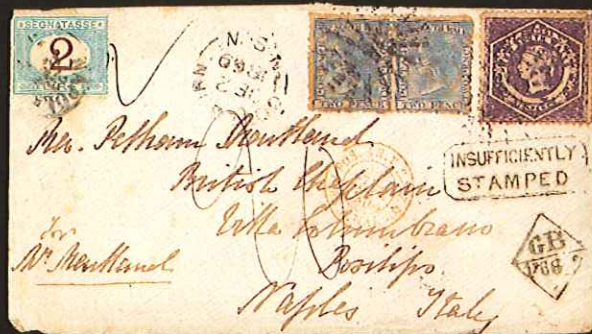 SEGNATASSE
2
N.S.W
TWO PENCE
TWO PENCE
INSUFFICIENTLY
STAMPED
Rev. Pelham Maitland
British Chaplain
Villa Columbrano
Posilipo
Naples Italy
for
Mr. Maitland
GB